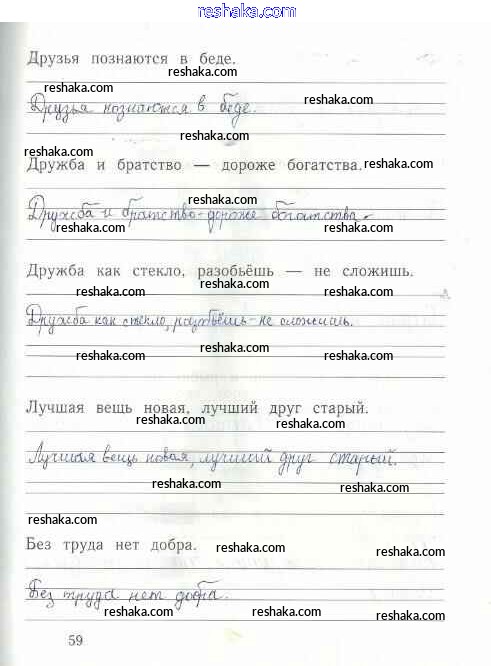 reshaka.com
Друзья познаются в беде.
reshaka.com
reshaka.com
reshaka.com
Друзья познаются в беде.
reshaka.com
reshaka.com
Дружба и братство — дороже богатства.
reshaka.com
reshaka.com
reshaka.com
Дружба и братство - дороже богатства.
reshaka.com
reshaka.com
Дружба как стекло, разобьёшь — не сложишь.
reshaka.com
reshaka.com
Дружба как стекло, разобьёшь - не сложишь.
reshaka.com
reshaka.com
reshaka.com
reshaka.com
Лучшая вещь новая, лучший друг старый.
reshaka.com
reshaka.com
Лучшая вещь новая, лучший друг старый.
reshaka.com
reshaka.com
reshaka.com
Без труда нет добра.
reshaka.com
reshaka.com
Без труда нет добра.
reshaka.com
reshaka.com
reshaka.com
59